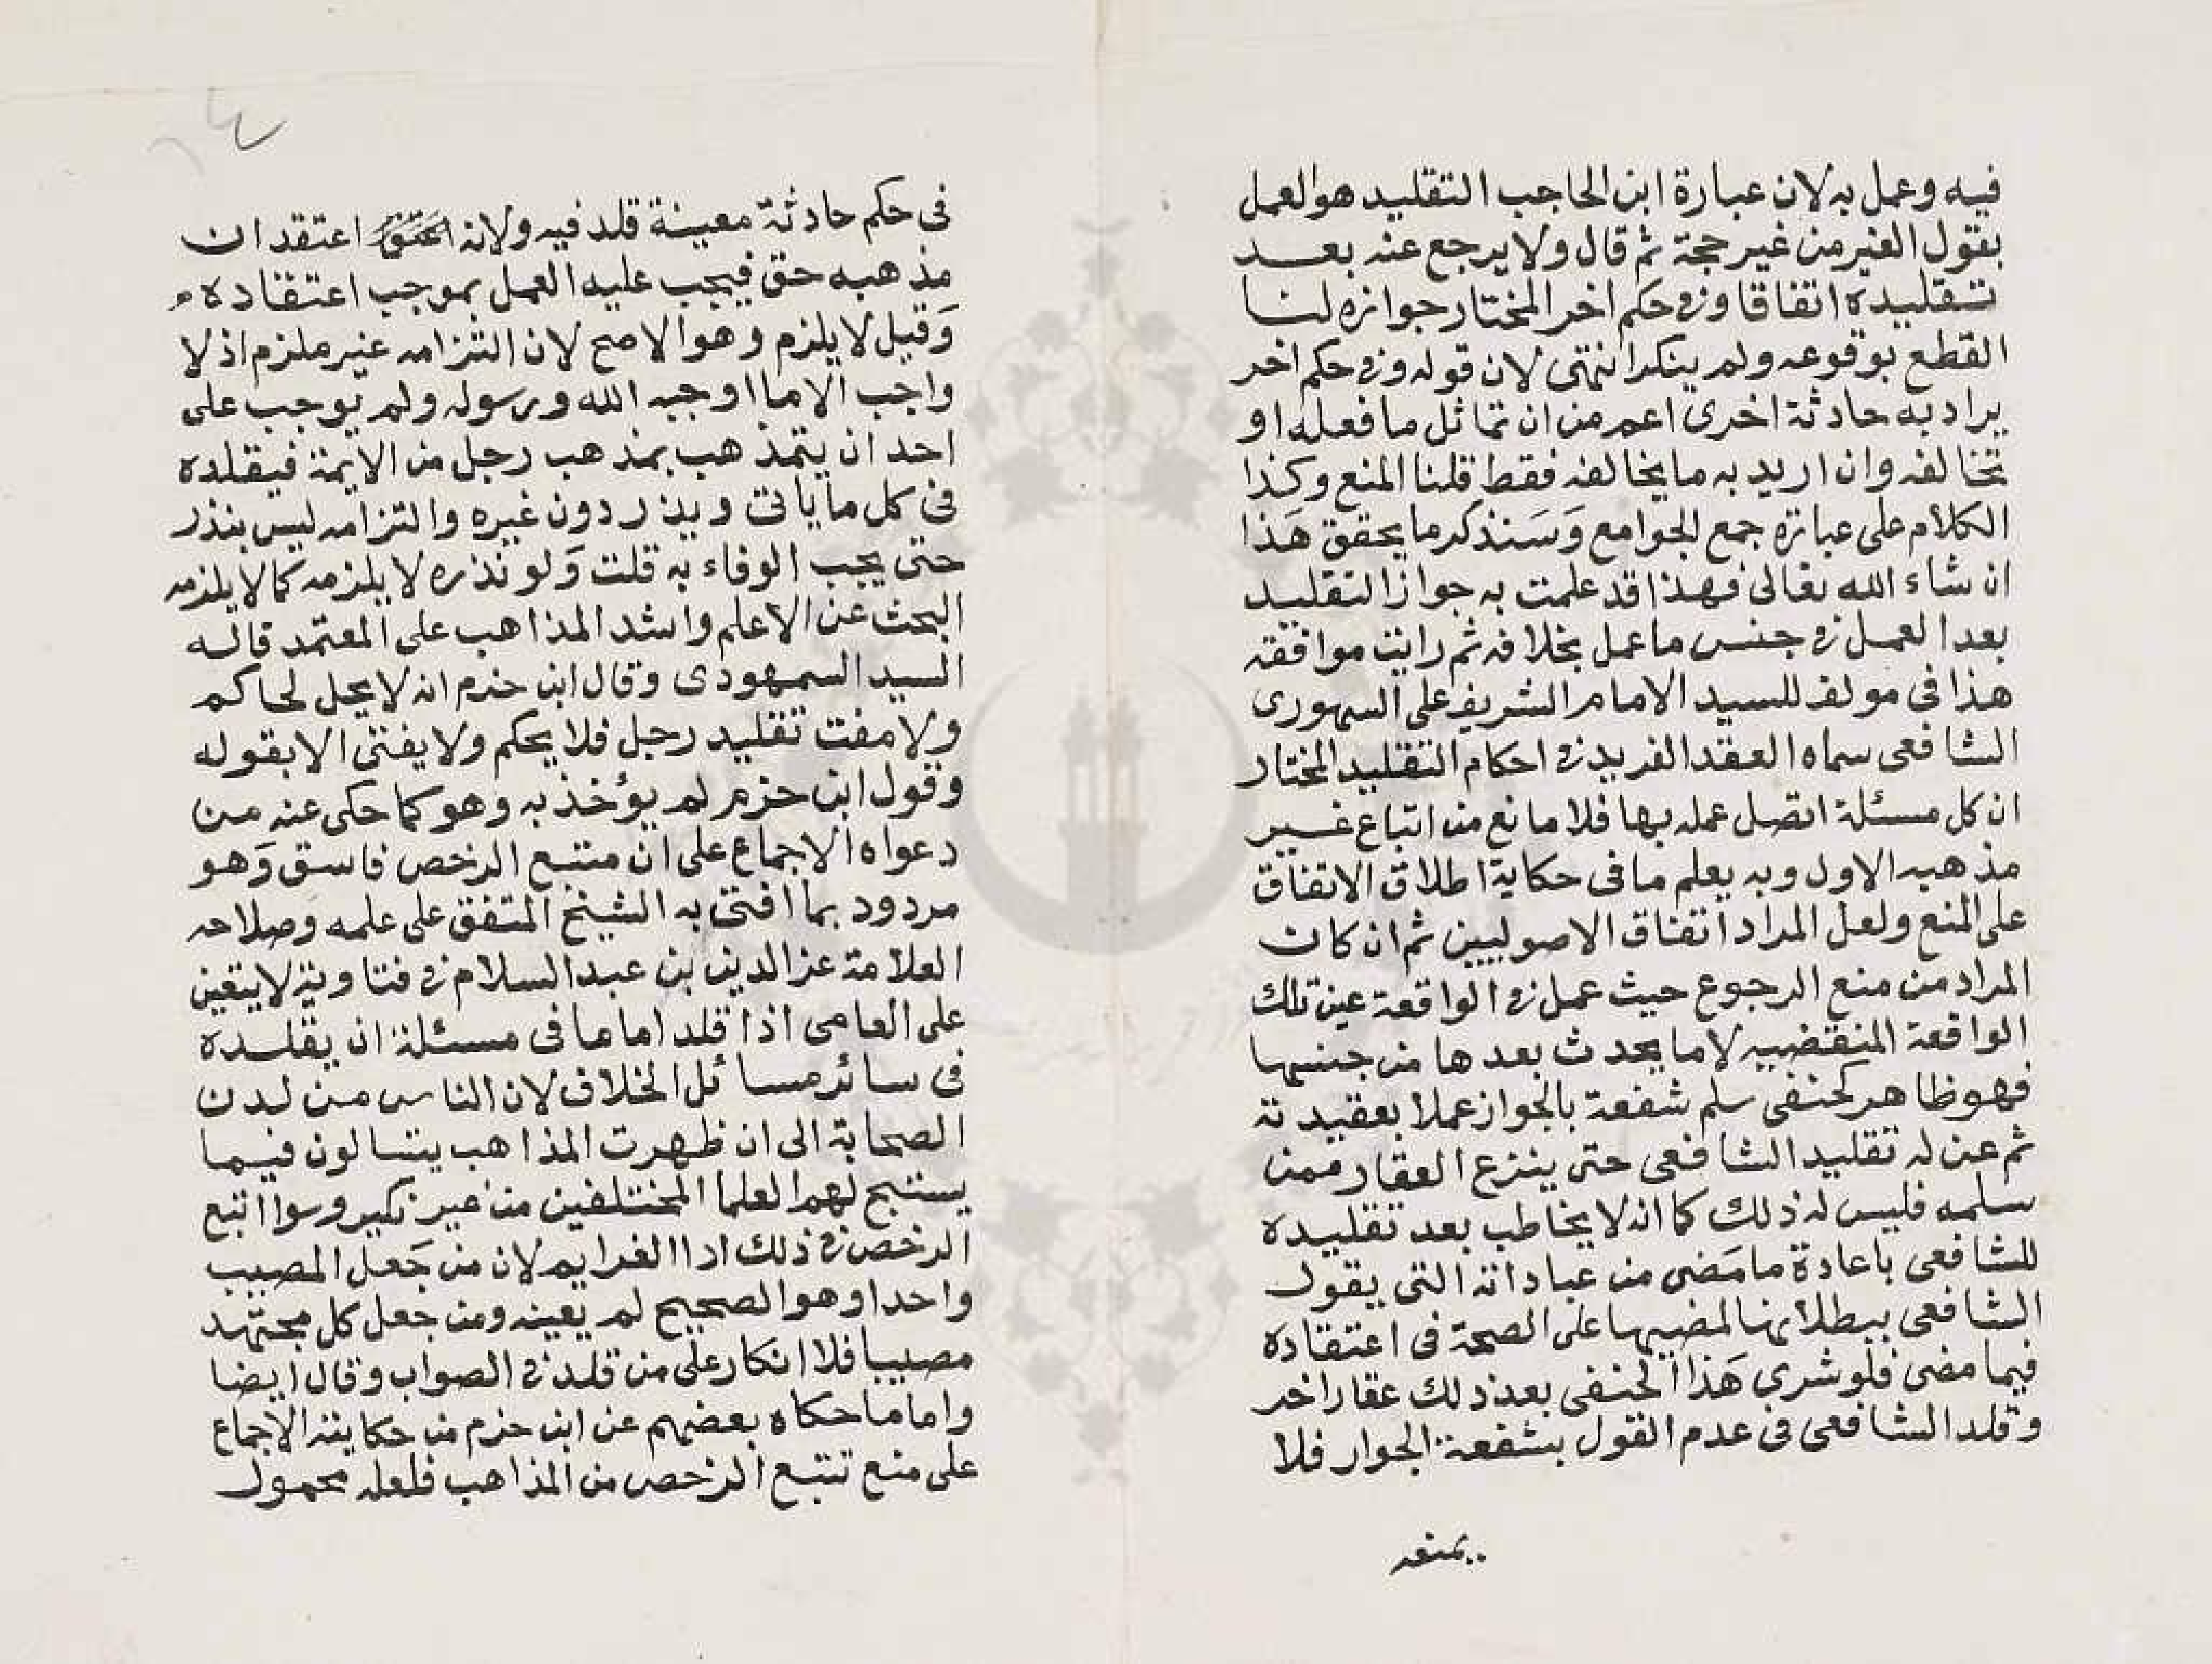 فيه وعمل به لان عبارة ابن الحاجب التقليد هو العمل
بقول الغير من غير حجة ثم قال ولا يرجع عنه بعد
تقليده اتفاقا وفي حكم اخر المختار جوازه لنا
القطع بوقوعه ولم ينكر انتهى لان قوله وفي حكم اخر
يراد به حادثة اخرى اعم من ان تماثل ما فعله او
تخالفه وان اريد به ما يخالفه فقط قلنا المنع وكذا
الكلام على عبارة جمع الجوامع وَسَنذكر ما يحقق هَذا
ان شاء الله تعالى فهذا قد علمت به جواز التقليد
بعد العمل في جنس ما عمل بخلافه ثم رايت موافقة
هذا في مولف للسيد الامام الشريف على السهورى
الشافعى سماه العقد الفريد في احكام التقليد المختار
ان كل مسئلة اتصل عمله بها فلا مانع من اتباع غير
مذهبه الاول وبه يعلم ما فى حكاية اطلاق الاتفاق
على المنع ولعل المراد اتفاق الاصوليين ثم ان كان
المراد من منع الرجوع حيث عمل في الواقعة عين تلك
الواقعة المنقضيه لا ما يحدث بعدها من جنسها
فهو ظاهر كحنفى سلم شفعة بالجواز عملا بعقيدته
ثم عن له تقليد الشافعى حتى ينزع العقار ممن
سلمه فليس له ذلك كما انه لا يخاطب بعد تقليده
للشافعى باعادة ما مَضى من عباداته التى يقول
الشافعى ببطلانها لمضيها على الصحة فى اعتقاده
فيما مضى فلو شرى هَذا الحنفى بعد ذلك عقارا اخر
وقلد الشافعى فى عدم القول بشفعة الجوار فلا
يمنعه
في حكم حادثة معينة قلد فيه ولانه اعتقد ان
مذهبه حق فيجب عليه العمل بموجب اعتقاده
وَقيل لا يلزم وهو الاصح لان التزامه غير ملزم اذ لا
واجب الا ما اوجبه الله ورسوله ولم يوجب على
احد ان يتمذهب بمذهب رجل من الايمة فيقلده
فى كل ما ياتى ويذر دون غيره والتزامه ليس بنذر
حتى يجب الوفاء به قلت وَلو نذره لا يلزمه كما لا يلزمه
البحث عن الاعلم واسد المذاهب على المعتمد قاله
السيد السمهودى وقال ابن حزم انه لا يحل لحاكم
ولا مفت تقليد رجل فلا يحكم ولا يفتى الا بقوله
وقول ابن حزم لم يؤخذ به وهو كما حكى عنه من
دعواه الاجماع على ان متتبع الرخص فاسق وَهو
مردود بما افتى به الشيخ المتفق على علمه وصلاحه
العلامة عز الدين بن عبد السلام في فتاويه لا يتعين
على العامى اذا قلد اماما فى مسئلة ان يقلده
فى سائر مسائل الخلاف لان الناس من لدن
الصحابة الى ان ظهرت المذاهب يتسالون فيما
يستبح لهم العلما المختلفين من غير نكير وسوا اتبع
الرخص في ذلك ادا الغرايم لان من جَعل المصيب
واحدا وهو الصحيح لم يعينه ومن جعل كل مجتهد
مصيبا فلا انكار على من قلد في الصواب وقال ايضا
واما ما حكاه بعضهم عن ابن حزم من حكايته الاجماع
على منع تتبع الرخص من المذاهب فلعله محمول